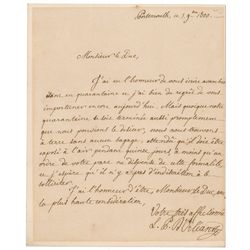 Portsmouth, ce 3 9bre 1800.
Monsieur le Duc,
J'ai eu l'honneur de vous écrire avant hier
dans ma quarantaine et j'ai bien du regret de vous
importuner encore aujourd'hui. Mais quoique notre
quarantaine se soit terminée aussi promptement
que nous pouvions le désirer, nous nous trouvons
à terre sans aucun bagage, attendu qu'il doit être
exposé à l'air pendant quinze jours à moins qu'un
ordre de votre part ne dispense de cette formalité
et j'espère qu'il n'y a pas d'indiscrétion à le
solliciter.
J'ai l'honneur d'être, Monsieur le Duc, avec
la plus haute considération,
Votre très affectionné
L. P. d'Orléans